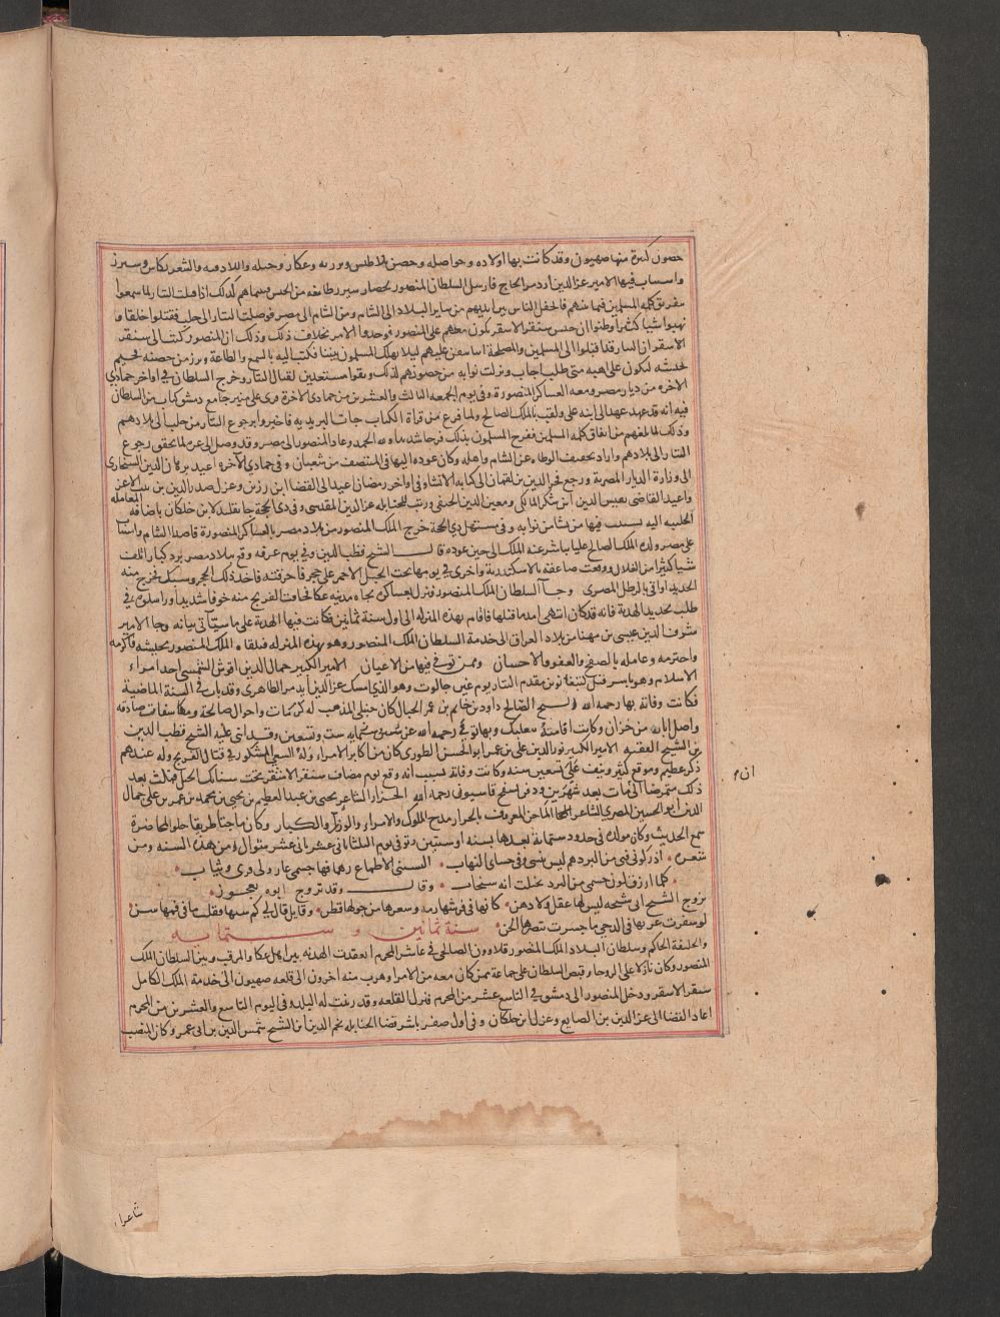 حصون كبيرة منها صهيون وقد كانت بها اولاده وحواصله وحصن بلاطنس وبرزيه وعكار وجبله واللادقيه والشغر بكاس وشيزر
واستناب فيها الامير عز الدين ازدمر الحاج فارسل السلطان المنصور لحصار شيزر طايفه من الجيش فبينماهم كذلك اذ اقبلت التتار لما سمعوا
بتفريق كلمة المسلمين فيما بينهم فانجفل الناس بين ايديهم من ساير البلاد الى الشام ومن الشام الى مصر فوصلت التتار الى حلب فقتلوا خلقا و
نهبوا شيا كثيرا وظنوا ان جيش سنقر الاسقر يكون معهم على المنصور فوجدوا الامر بخلاف ذلك وذلك ان المنصور كتب الى سنقر
الاسقر ان التتار قد اقبلوا الى المسلمين والمصلحة انا نتفق عليهم ليلا يهلك المسلمون بيننا فكتب اليه بالسمع والطاعة وبرز من حصنه فخيم
بجيشه ليكون على اهبه متى طلب اجاب ونزلت نوابه من حصونهم لذلك وبقوا مستعدين لقتال التتار وخرج السلطان في اواخر جمادي
الاخره من ديار مصر ومعه العساكر المنصورة وفي يوم الجمعه الثالث والعشرين من جمادي الاخرة قرى على منبر جامع دمشق كتاب من السلطان
فيه انه قد عهد عهدا الى ابنه علي ولقب بالملك الصالح ولما فرغ من قراة الكتاب جات البريديه فاخبروا برجوع التتار من حلب الى بلادهم
وذلك لما بلغهم من اتفاق كلمه المسلمين ففرح المسلمون بذلك فرحا شديدا ولله الحمد وعاد المنصور الى مصر وقد وصل الى غزه لما تحقق رجوع
التتار الى بلادهم واراد تخفيف الوطاه عن الشام واهله وكان عوده اليها في المنتصف من شعبان وفي جمادي الاخره اعيد برهان الدين السنجاري
الى وزارة الديار المصرية ورجع فخر الدين بن لقمان الى كتابه الانشا وفي اواخر رمضان اعيد الى القضا ابن رزين وعزل صدر الدين بن بنت الاعز
واعيد القاضي نفيس الدين ابن شكر المالكي ومعين الدين الحنفي ورتب للحنابله عز الدين المقدسي وفي ذي الحجة جا تقليد لابن خلكان باضافه المعامله
الحلبيه اليه يستنيب فيها من يشا من نوابه وفي مستهل ذي الحجة خرج الملك المنصور من بلاد مصر بالعساكر المنصورة قاصدا الشام واستناب
على مصر ولده الملك الصالح عليا يباشر عنه الملك الى حين عوده قال الشيخ قطب الدين وفي يوم عرفه وقع ببلاد مصر برد كبار اتلفت
شيا كثيرا من الغلال ووقعت صاعقه بالاسكندرية واخرى في يومها تحت الجبل الاحمر على حجر فاحرقته فاخذ ذلك الحجر وسبك فخرج منه
الحديد اواقي بالرطل المصري وجا السلطان الملك المنصور فنزل بعساكره تجاه مدينه عكا فخافت الفرنج منه خوفا شديدا وراسلوه في
طلب تجديد الهدنة فانه قد كان انتهى امدها قبلها فاقام بهذه المنزله الى اول سنة ثمانين فكانت فيها الهدنة على ما سياتي بيانه وجا الامير
شرف الدين عيسى بن مهنا من بلاد العراق الى خدمة السلطان الملك المنصور وهو بهذه المنزله فتلقاه الملك المنصور بجيشه فاكرمه
واحترمه وعامله بالصفح والعفو والاحسان وممن توفي فيها من الاعيان الامير الكبير جمال الدين اقوش الشمسي احد امراء
الاسلام وهو باشر قتل كتبغا نوين مقدم التتار يوم عين جالوت وهو الذي امسك عز الدين ايدمر الظاهري وقد ناب في السنة الماضية
فكانت وفاته بها رحمه الله الشيخ الصالح داود بن حاتم بن عمر الحبال كان حنبلي المذهب له كرامات واحوال صالحة ومكاشفات صادقه
واصل ابائه من حران وكانت اقامته ببعلبك وبها توفي رحمه الله عن ست وتسعين وقد اثنى عليه الشيخ قطب الدين
بن الشيخ الفقيه الامير الكبير نور الدين علي بن عمر ابو الحسن الطوري كان من اكابر الامراء وله السعي المشكور في قتال الفرنج وله عندهم
ذكر عظيم وموقع كثير ونيف على تسعين سنه وكانت وفاته بسبب انه وقع يوم مصاف سنقر الاشقر تحت سنابك الخيل فمكث بعد
ذلك متمرضا الى مات بعد شهرين ودفن بسفح قاسيون رحمه الله الجزار الشاعر يحيى بن عبد العظيم بن يحيى بن محمد بن عمر بن علي جمال
الدين ابو الحسين المصري الشاعر الماجن المعروف بالجزار مدح الملوك والامراء والوزراء والكبار وكان ماجنا ظريفا حلو المحاضرة
سمع الحديث وكان مولده في حدود ستمائة بعدها بسنه او سنتين وتوفي يوم الثلثا ثاني عشر شوال من هذه السنه ومن
شعره ادركوني فبي من البرد هم ليس ينسى وفي حشاي التهاب البستني الاطماع وهما فها جسمي عار ولي فرى وثياب
كلما ازرق لون جسمي من البرد تخيلت انه سنجاب وقال وقد تزوج ابوه بعجوز
تزوج الشيخ ابي شيخه ليس لها عقل ولا ذهن كانها في فرشها رمه وشعرها من حولها قطن وقايل قال لي كم سنها فقلت ما في فمها سن
لو سفرت غرتها في الدجى ما جسرت تبصرها الجن سنة ثمانين و ستمايه
والخليفة الحاكم وسلطان البلاد الملك المنصور قلاوون الصالحي في عاشر المحرم انعقدت الهدنه بين اهل عكا والمرقب وبين السلطان الملك
المنصور وكان نازلا على الروحا وقبض السلطان على جماعة ممن كان معه من الامرا وهرب منه اخرون الى قلعه صهيون الى خدمة الملك الكامل
سنقر الاسقر ودخل المنصور الى دمشق في التاسع عشر من المحرم فنزل القلعه وقد زينت له البلد وفي اليوم التاسع والعشرين من المحرم
اعاد القضا الى عز الدين بن الصايغ وعزل ابن خلكان وفي اول صفر باشر قضا الحنابله نجم الدين بن الشيخ شمس الدين بن ابي عمر وكان المنصب
شاغرا